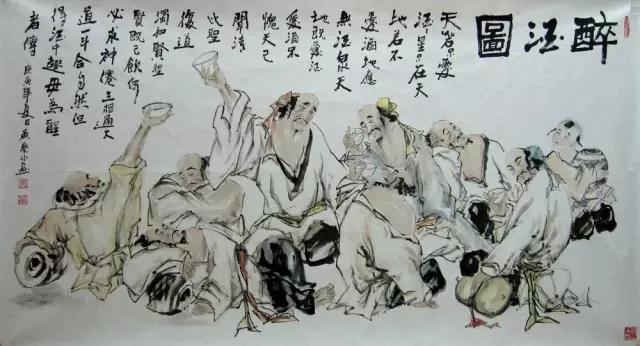 醉酒圖
天若不愛
酒星不在天
地若不
愛酒地應
無酒泉天
地既愛酒
愛酒不
愧天已
聞清
比聖
復道
濁如賢聖
賢既已飲何
必求神僊三杯通大
道一斗合自然但
得酒中趣毋為醒
者傳
庚寅年夏日